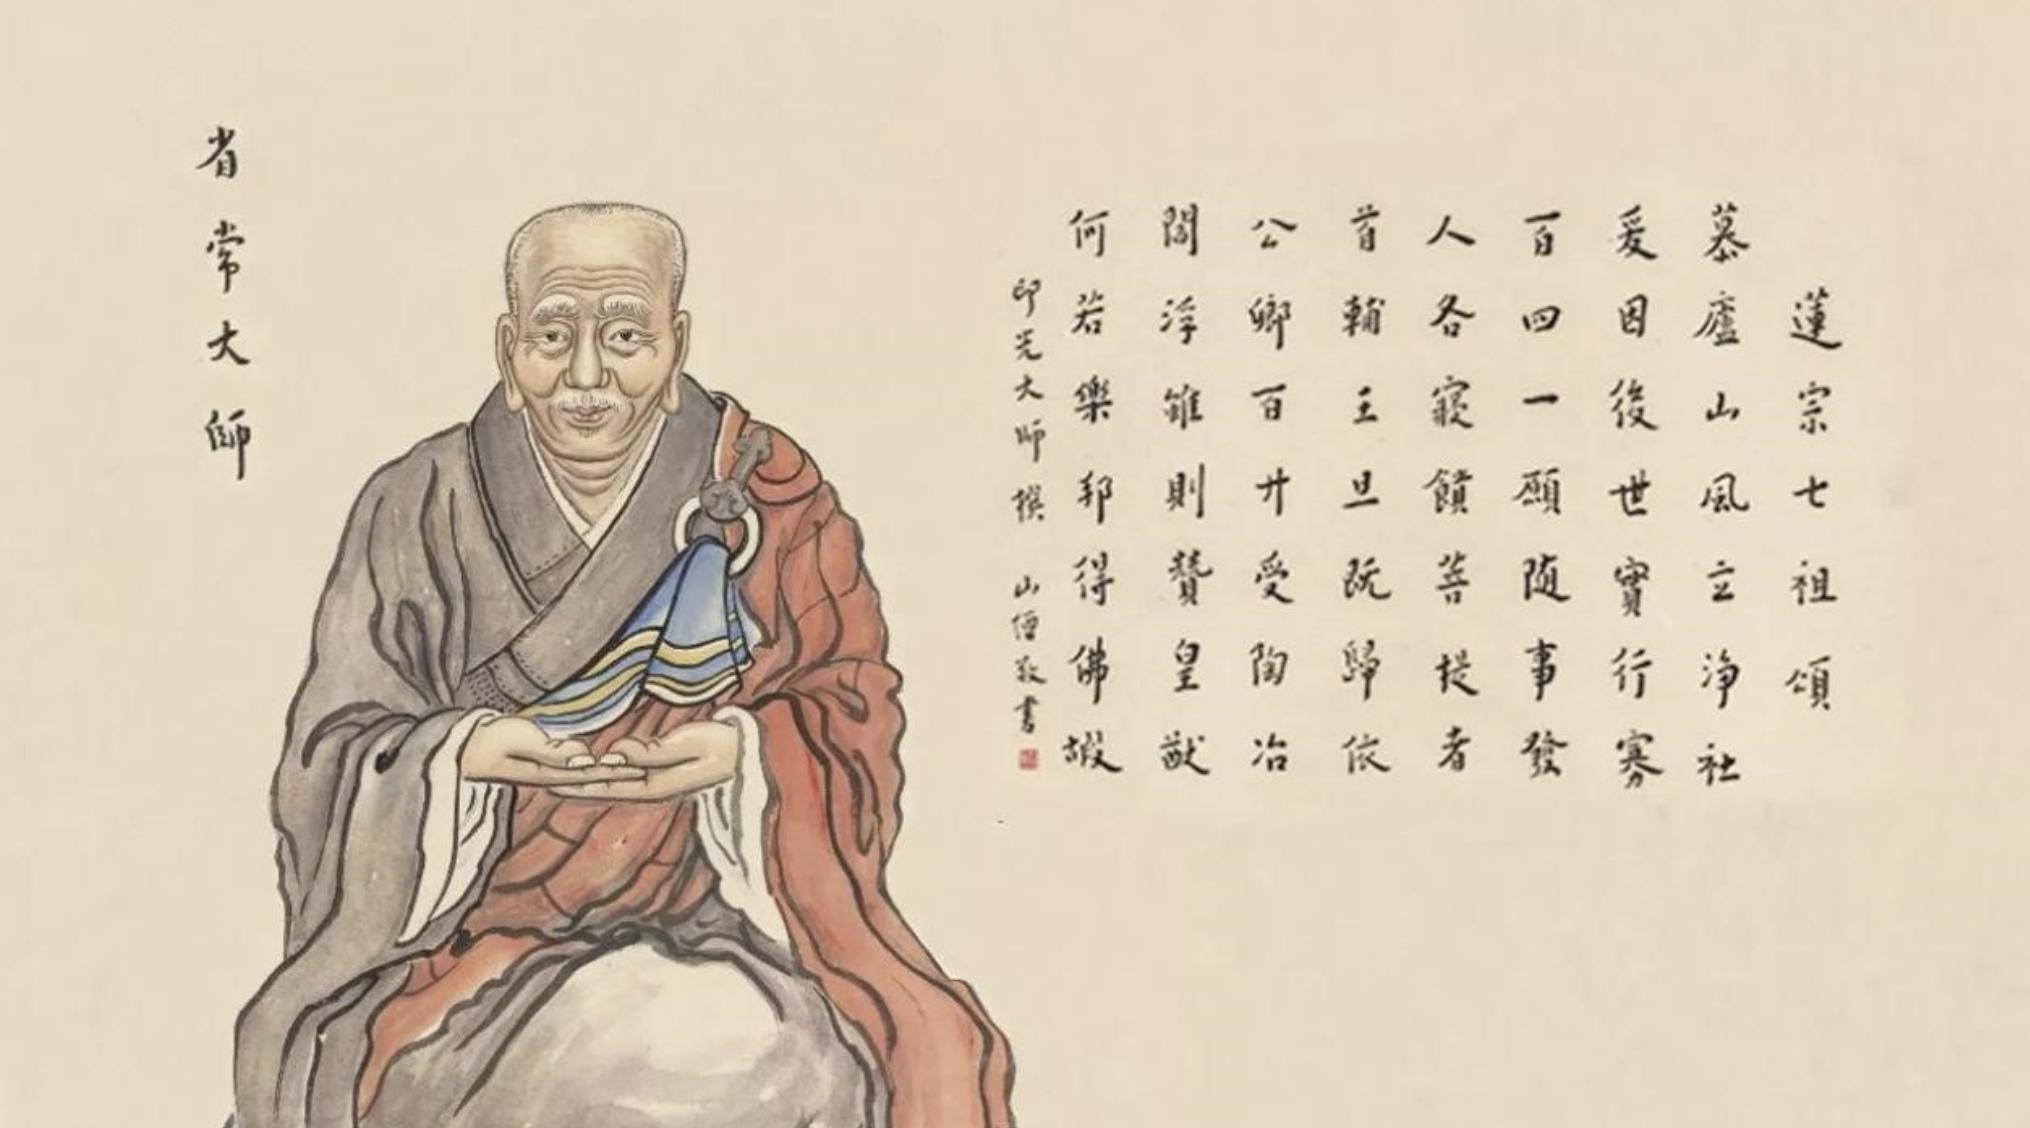 蓮宗七祖頌
慕廬山風立淨社
爰因後世實行寡
百四一願随事發
人各寢饋菩提者
首輔王旦既歸依
公卿百廿受陶冶
閻浮雖則贊皇猷
何若樂邦得佛嘏
印光大師撰 山僧敬書
省常大師